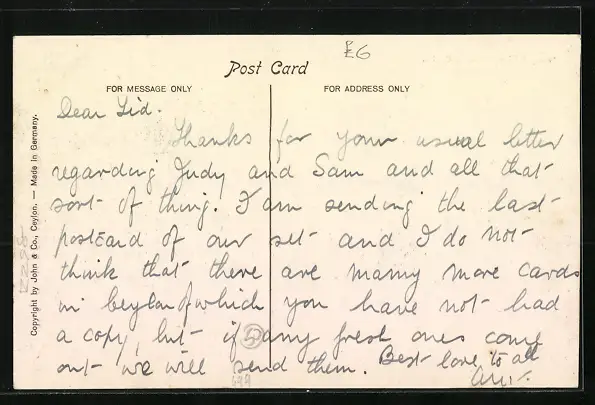 £6
Post Card
FOR MESSAGE ONLY
FOR ADDRESS ONLY
Dear Sid.
Thanks for your usual letter
regarding Judy and Sam and all that
sort of thing. I am sending the last
postcard of our set and I do not
think that there are many more cards
in Ceylon of which you have not had
a copy, but if any fresh ones come
out we will send them. Best love to all
5
Copyright by John & Co., Ceylon. — Made in Germany.